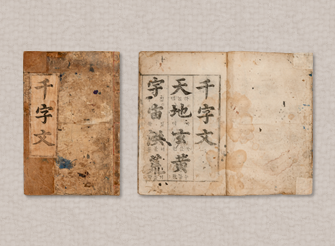 千字文
千字文
天地玄黃
宇宙洪荒